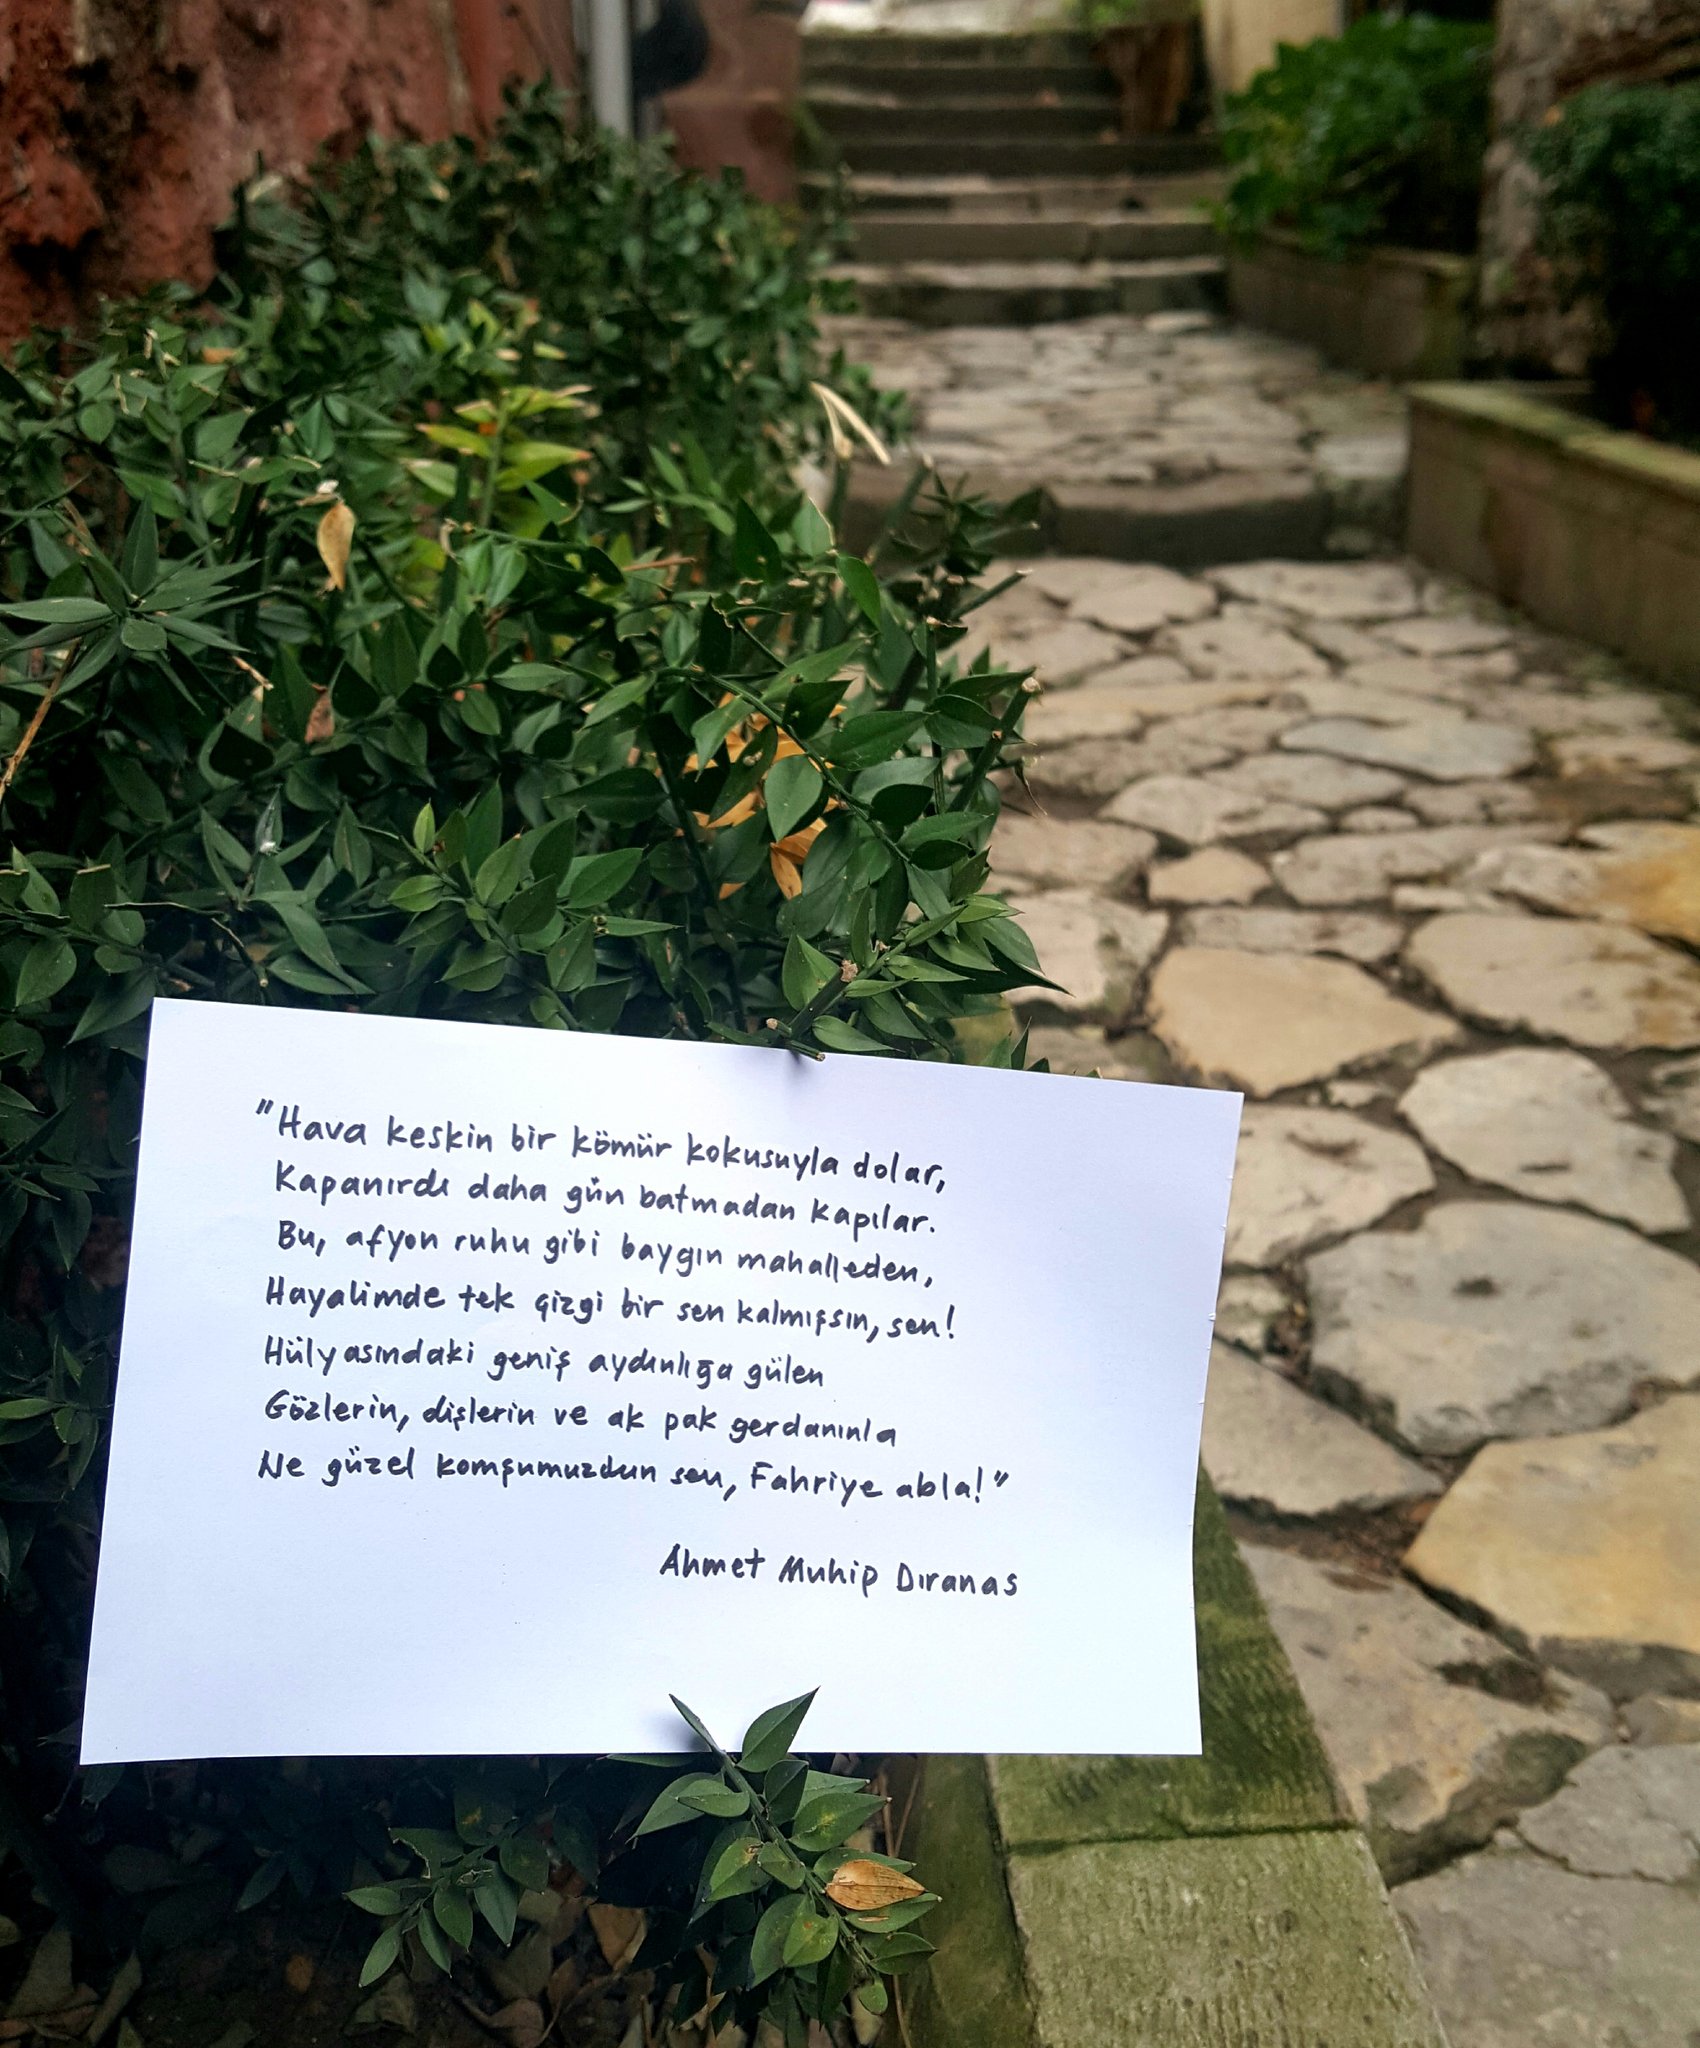 "Hava keskin bir kömür kokusuyla dolar,
Kapanırdı daha gün batmadan kapılar.
Bu, afyon ruhu gibi baygın mahalleden,
Hayalimde tek çizgi bir sen kalmışsın, sen!
Hülyasındaki geniş aydınlığa gülen
Gözlerin, dişlerin ve ak pak gerdanınla
Ne güzel komşumuzdun sen, Fahriye abla!"
Ahmet Muhip Dıranas